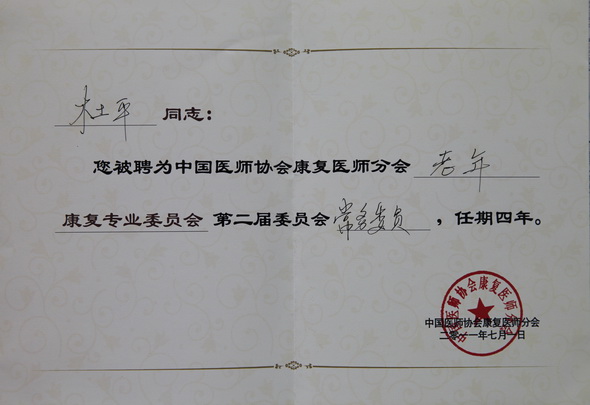 杜平 同志：
您被聘为中国医师协会康复医师分会 老年
康复专业委员会 第二届委员会常务委员，任期四年。
中国医师协会康复医师分会
中国医师协会康复医师分会
二零一一年七月一日